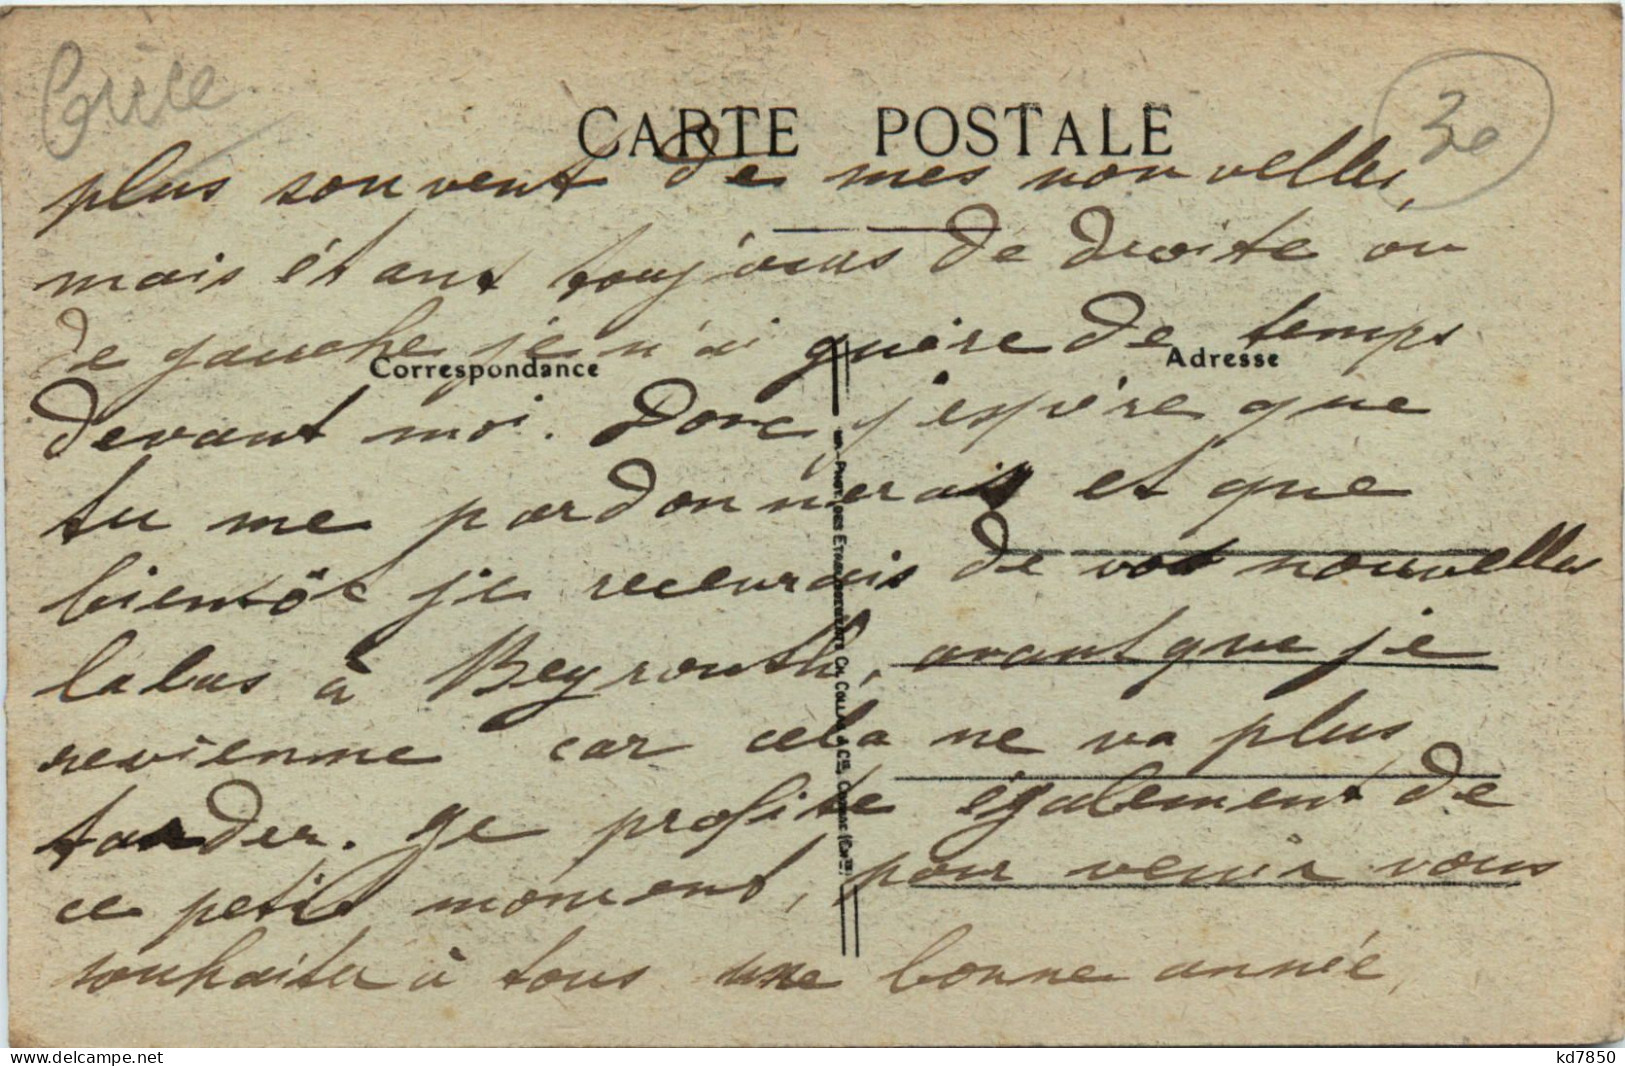 CARTE POSTALE
30
plus souvent de mes nouvelles,
mais étant toujours de droite ou
de gauche je n'ai guère de temps
Correspondance
Adresse
devant moi. Donc j'espère que
tu me pardonnerais et que
bientôt je recevrais de vos nouvelles
labas à Beyrouth, avant que je
revienne car cela ne va plus
tarder. Je profite également de
ce petit moment, pour venir vous
souhaiter à tous une bonne année,
www.delcampe.net
kd7850